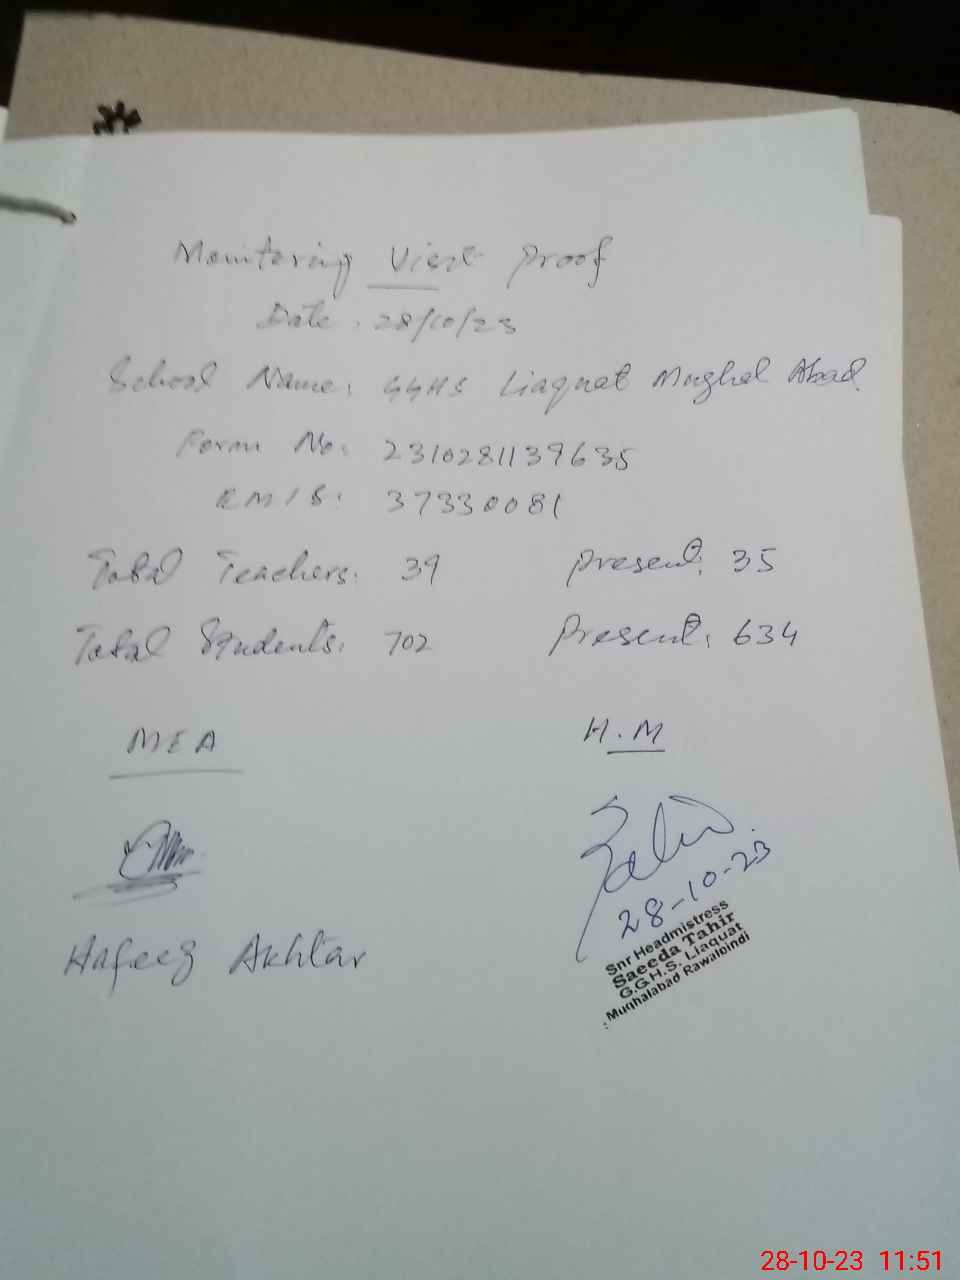 Monitoring Visit Proof
Date: 28/10/23
School Name: GGHS Liaquat Mughal Abad
Form No: 2310281139635
EMIS: 37330081
Total Teachers: 39 Present: 35
Total Students: 702 Present: 634
MEA H.M
28-10-23
Snr Headmistress
Saeeda Tahir
G.G.H.S. Liaquat
Mughalabad Rawalpindi
Hafeez Akhtar
28-10-23 11:51